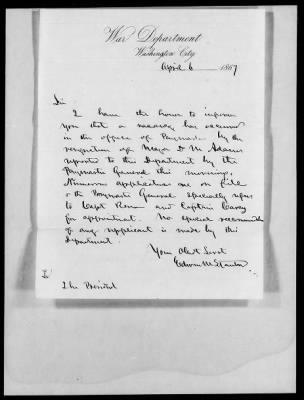 War Department
Washington City
April 6 1867
Sir
I have the honor to inform
you that a vacancy has occurred
in the office of Paymaster by the
resignation of Major D M Adams
reported to this Department by the
Paymaster General this morning.
Numerous applications are on file
& the Paymaster General specially refers
to Capt and Captain
for appointment. No special recommenda
of any applicant is made by this
Department.
Your Obedt Servt
Edwin M Stanton
The President